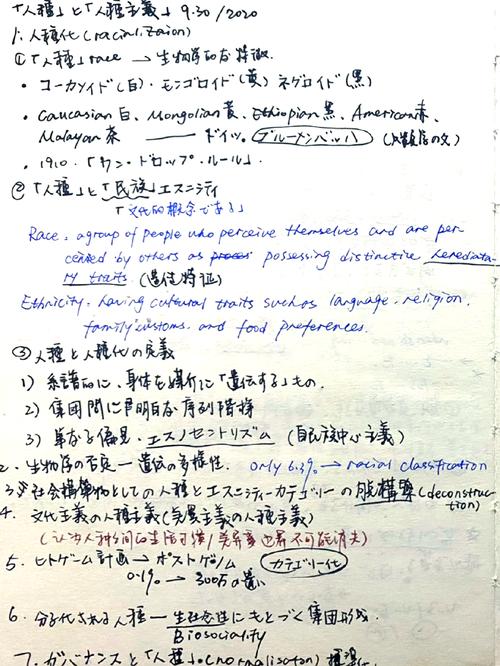 「人種」と「人種主義」 9.30/2020
1. 人種化 (racialization)
① 「人種」race → 生物学的な特徴.
• コーカソイド(白)・モンゴロイド(黄) ネグロイド(黒)
• Caucasian 白、Mongolian 黄、Ethiopian 黒、American 赤、
Malayan 茶 ドイツ。ブルーメンバッハ
• 1910.「ワン・ドロップ・ルール」.
② 「人種」と「民族」エスニシティ
「文化的概念である」
Race: a group of people who perceive themselves and are per-
ceived by others as possessing distinctive heredita-
ry traits. (遗传特征)
Ethnicity: having cultural traits such as language. religion,
family customs. and food preferences.
③ 人種と人種化の定義
1) 系譜的に、身体を媒介に「遺伝する」もの.
2) 集団間に明白な序列階梯
3) 単なる偏見・エスノセントリズム (自民族中心主義)
2. 生物学の否定 — 遺伝の多様性. only 6.3% → racial classification
3. 社会構築物としての人種とエスニシティーカテゴリーの脱構築 (deconstruc-
tion)
4. 文化主義の人種主義 (差異主義の人種主義)
5. ヒトゲノム計画 → ポストゲノム カテゴリー化
0.1% → 300万の違い
6. 分子化される人種 — 生社会性にもとづく集団形成.
Biosociality
7. ガバナンスと「人種」.